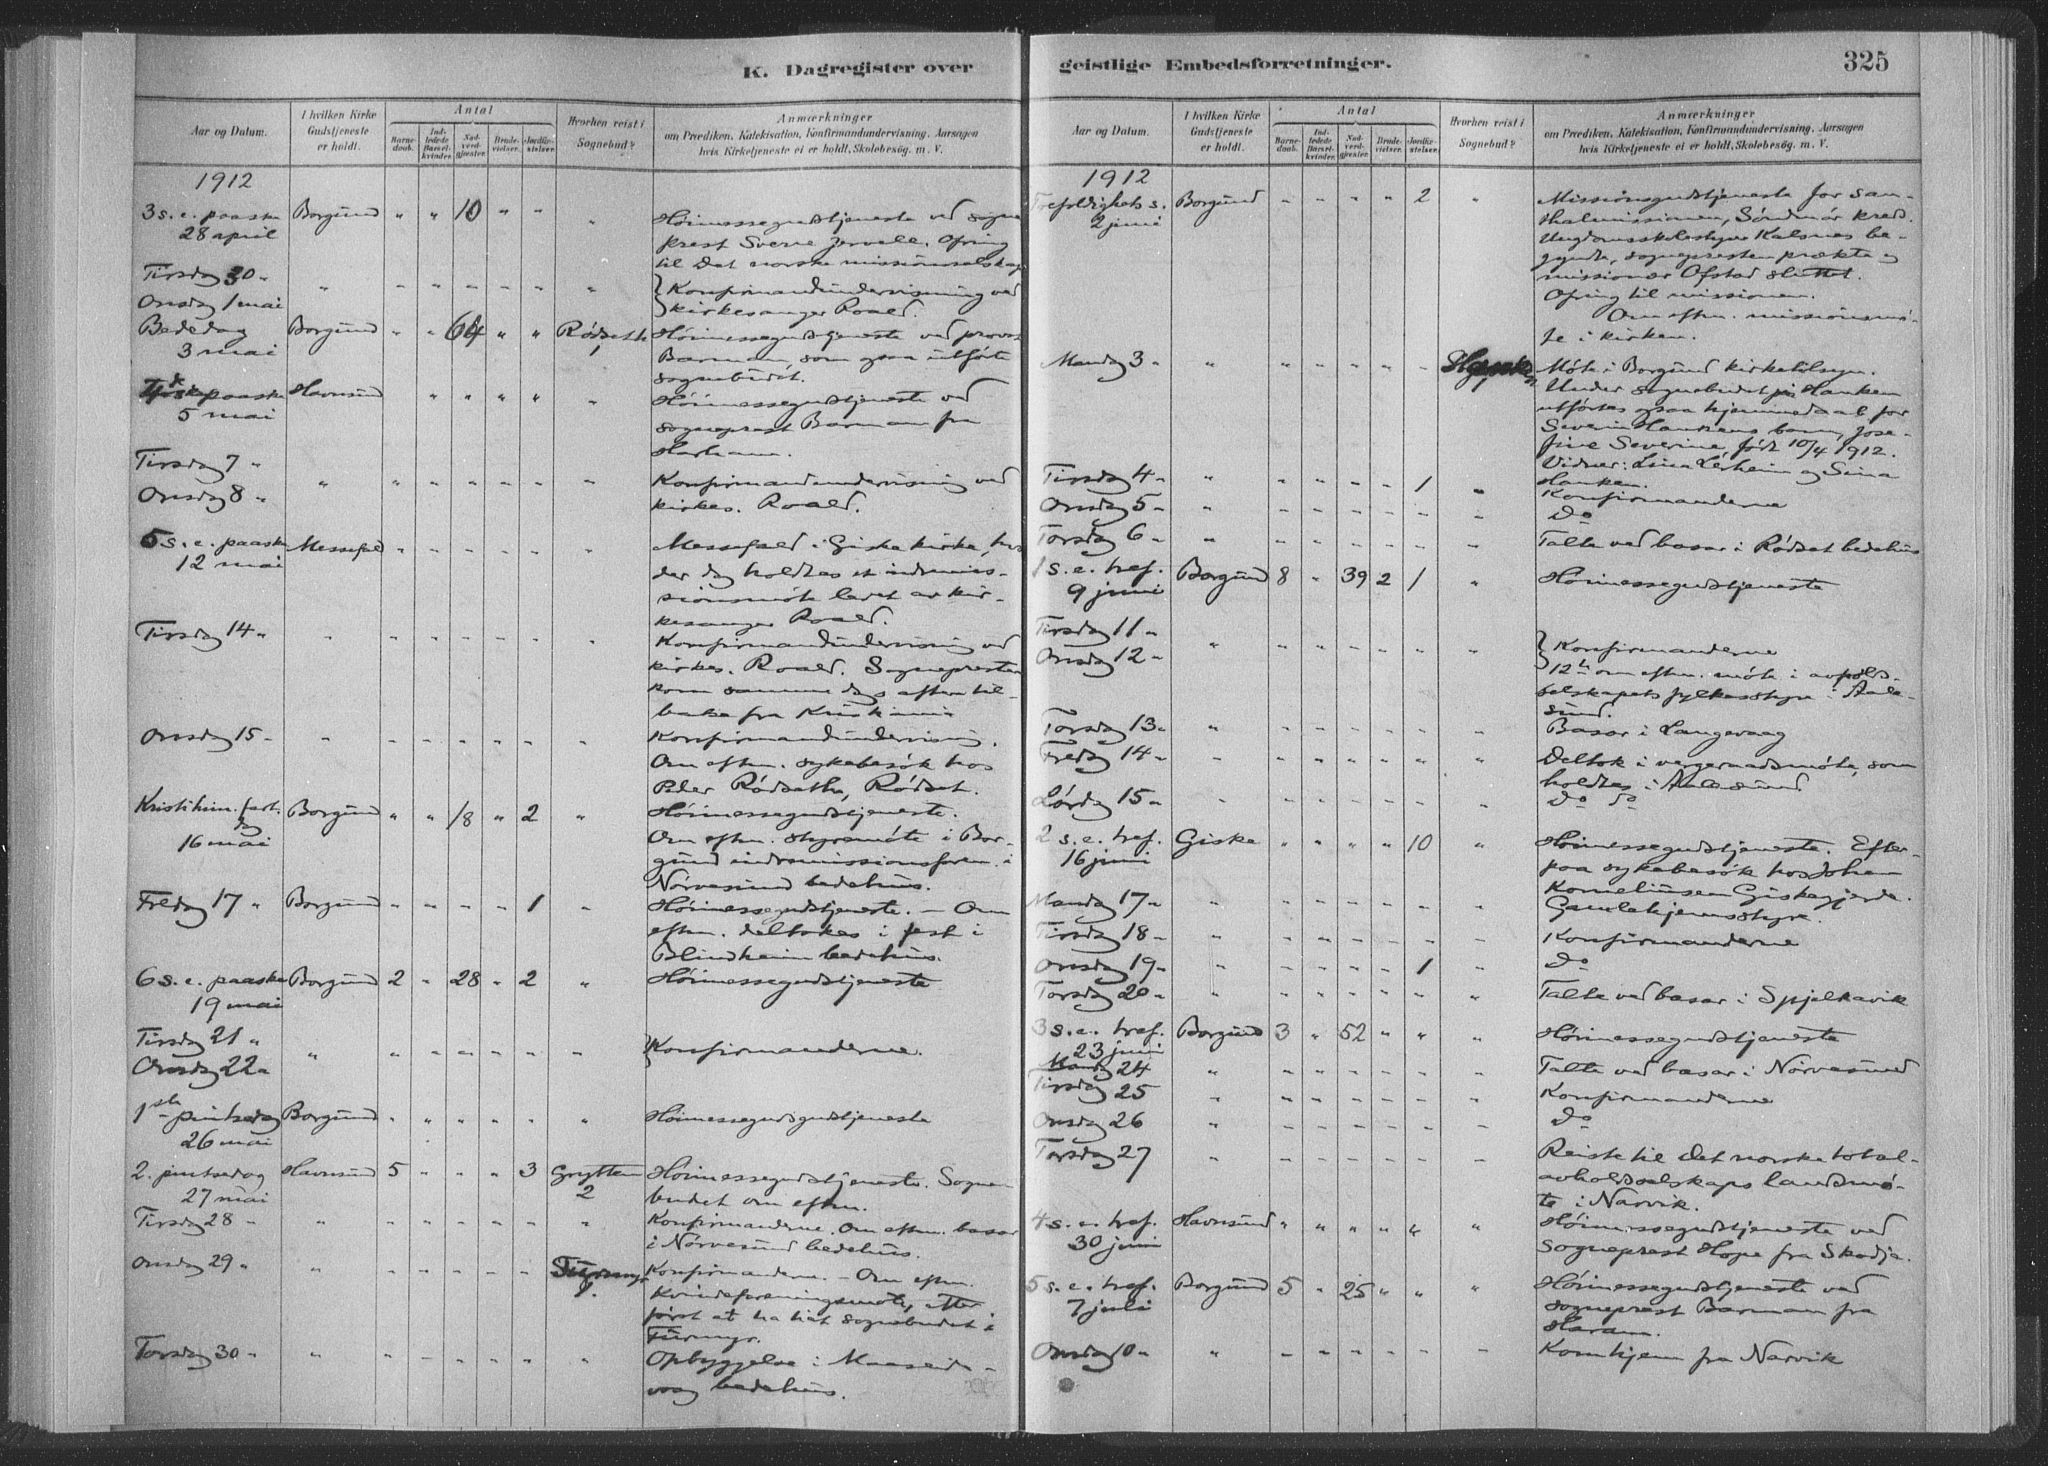 K. Dagregister over
Aar og Datum.
I hvilken Kirke Gudstjeneste er holdt.
Antal
Barnedaab.
Indledede Barselkvinder.
Nadverdgjester.
Brudevielser.
Jordfæstelser.
Hvorhen reist i Sognebud?
Anmærkninger
om Prædiken, Katekisation, Konfirmandundervisning. Aarsagen
hvis Kirketjeneste ei er holdt, Skolebesøg. m. V.
1912
3 s. e. paaske Borgund " " 10 " " " Høimessegudstjeneste ved sogne
28 april prest Sverre Jervell. Ofring
til Det norske missionsselskap
Tirsdag 30 "
Onsdag 1 mai " Konfirmandundervisning ved
kirkesanger Roald.
Bededag Borgund " " 64 " " Rødseth Høimessegudstjeneste ved provst
3 mai 1 Barman, som ogsaa utførte
sognebudet.
4 s. e. paaske Havnsund " " " " " Høimessegudstjeneste ved
5 mai sogneprest Barman fra
Harham.
Tirsdag 7 "
Onsdag 8 " " Konfirmandundervisning ved
kirkes. Roald.
5 s. e. paaske Messefald Messefald i Giske kirke, hvor
12 mai der dog holdtes et indremis-
sionsmøte ledet av kir-
kesanger Roald.
Tirsdag 14 " Konfirmandundervisning ved
kirkes. Roald. Sognepresten
kom samme dags aften til-
bake fra Kristiania
Onsdag 15 " Konfirmandundervisning.
Om eftm. sykebesøk hos
Peder Rødseth, Rødset.
Kristi him. fart. Borgund " " 18 " 2 " Høimessegudstjeneste.
dag
16 mai Om eftm. styremøte i Bor-
gund indremissionsforen. i
Nørvesund bedehus.
Fredag 17 " Borgund 1 Høimessegudstjeneste. - Om
eftm. deltokes i fest i
Blindheim bedehus.
6 s. e. paaske Borgund 2 " 28 " 2 " Høimessegudstjeneste
19 mai
Tirsdag 21 "
Onsdag 22 " " Konfirmanderne.
1ste pintsedag Borgund " " " " " " Høimessegudsgudstjeneste
26 mai
2. pintsedag Havnsund 5 " " " 3 Grytten Høimessegudstjeneste. Sogne-
27 mai 2 budet om eftm.
Tirsdag 28 " " Konfirmanderne. Om eftm. basar
i Nørvesund bedehus.
Onsdag 29 " " Furmyr Konfirmanderne. - Om eftm.
1. Kvindeforeningsmøte, efter
først at ha hat sognebudet i
Furmyr.
Torsdag 30 " " Opbyggelse i Maaseide-
vaag bedehus.
geistlige Embedsforretninger.
325
Aar og Datum.
I hvilken Kirke Gudstjeneste er holdt.
Antal
Barnedaab.
Indledede Barselkvinder.
Nadverdgjester.
Brudevielser.
Jordfæstelser.
Hvorhen reist i Sognebud?
Anmærkninger
om Prædiken, Katekisation, Konfirmandundervisning. Aarsagen
hvis Kirketjeneste ei er holdt, Skolebesøg. m. V.
1912
Trefoldighets s. Borgund " " " " 2 " Missionsgudstjeneste for san-
2 juni thalmissionen, Søndmør kreds.
Ungdomsskolestyrer Kalsnes be-
gyndte, sognepresten prækte og
missionær Ofstad sluttet.
Ofring til missionen.
Om eftm. missionsmø-
te i kirken.
Mandag 3 " " Hanken Møte i Borgund kirketilsyn.
1 Under sognebudet paa Hanken
utførtes ogsaa hjemmedaab for
Severin Hankens barn, Jose-
fine Severine, født 10/4 1912.
Vidner: Lina Lerheim og Sina
Hanken.
Tirsdag 4 " " 1 Konfirmanderne
Onsdag 5 " " Do
Torsdag 6 " " Talte ved basar i Rødset bedehus
1 s. e. tref. Borgund 8 " 39 2 1 " Høimessegudstjeneste
9 juni
Tirsdag 11 "
Onsdag 12 " " Konfirmanderne
12te om eftm. møte i avholds-
selskapets fylkesstyre i Aale-
sund.
Torsdag 13 " " Basar i Langevaag
Fredag 14 " " Deltok i vergeraadsmøte, som
holdtes i Aalesund
Lørdag 15 " Do Do
2 s. e. tref. Giske " " " " 10 " Høimessegudstjeneste. Efter-
16 juni paa sykebesøk hos Johan
Korneliussen Giskegjerde.
Mandag 17 " " Gamlehjemsstyre.
Tirsdag 18 " " Konfirmanderne
Onsdag 19 " " 1 Do
Torsdag 20 " " Talte ved basar i Spjelkavik
3 s. e. tref. Borgund 3 " 52 " " " Høimessegudstjeneste
23 juni
Mandag 24 " Talte ved basar i Nørvesund
Tirsdag 25 " Konfirmanderne
Onsdag 26 " Do
Torsdag 27 " Reiste til Det norske total-
avholdsselskaps landsmø-
te i Narvik.
4 s. e. tref. Havnsund " " " " " " Høimessegudstjeneste ved
30 juni sogneprest Hope fra Skodje.
5 s. e. tref. Borgund 5 " 25 " " " Høimessegudstjeneste ved
7 juli sogneprest Barman fra
Haram.
Onsdag 10 " " Kom hjem fra Narvik